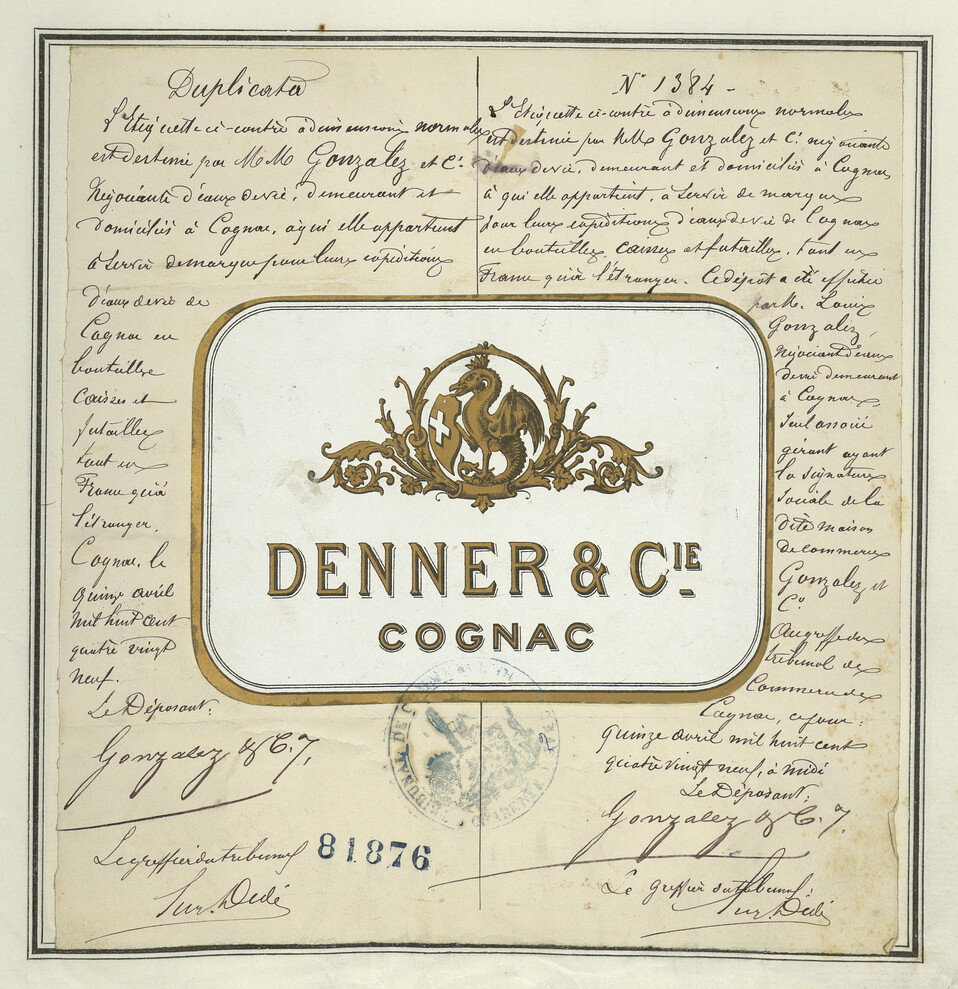 Duplicata
L'Etiquette ci-contre à dimensions normales
est destinée par MM Gonzalez et Cie
Négociants d'eaux de vie, demeurant et
domiciliés à Cognac, à qui elle appartient
à servir de marque pour leurs expéditions
d'eaux de vie de
Cognac en
bouteilles
caisses et
futailles
tant en
France qu'à
l'étranger.
Cognac, le
quinze avril
mil huit cent
quatre vingt
neuf.
Le Déposant:
Gonzalez & Co.
Le greffier du tribunal
N° 1384 -
L'Etiquette ci-contre à dimensions normales
est destinée par MM Gonzalez et Cie négociants
d'eaux de vie, demeurant et domiciliés à Cognac,
à qui elle appartient, à servir de marque
pour leurs expéditions d'eaux de vie de Cognac
en bouteilles, caisses et futailles, tant en
France qu'à l'étranger. Ce dépôt a été effectué
par M. Louis
Gonzalez,
Négociant d'eaux
de vie demeurant
à Cognac,
seul associé
gérant ayant
la signature
sociale de la
dite maison
de commerce
Gonzalez et
Co
Au greffe du
tribunal de
Commerce de
Cognac, ce jour:
quinze avril mil huit cent
quatre vingt neuf, à midi
Le Déposant:
Gonzalez & Co.
Le greffier du tribunal:
DENNER & CIE
COGNAC
TRIBUNAL DE COMMERCE
CHARENTE
81876